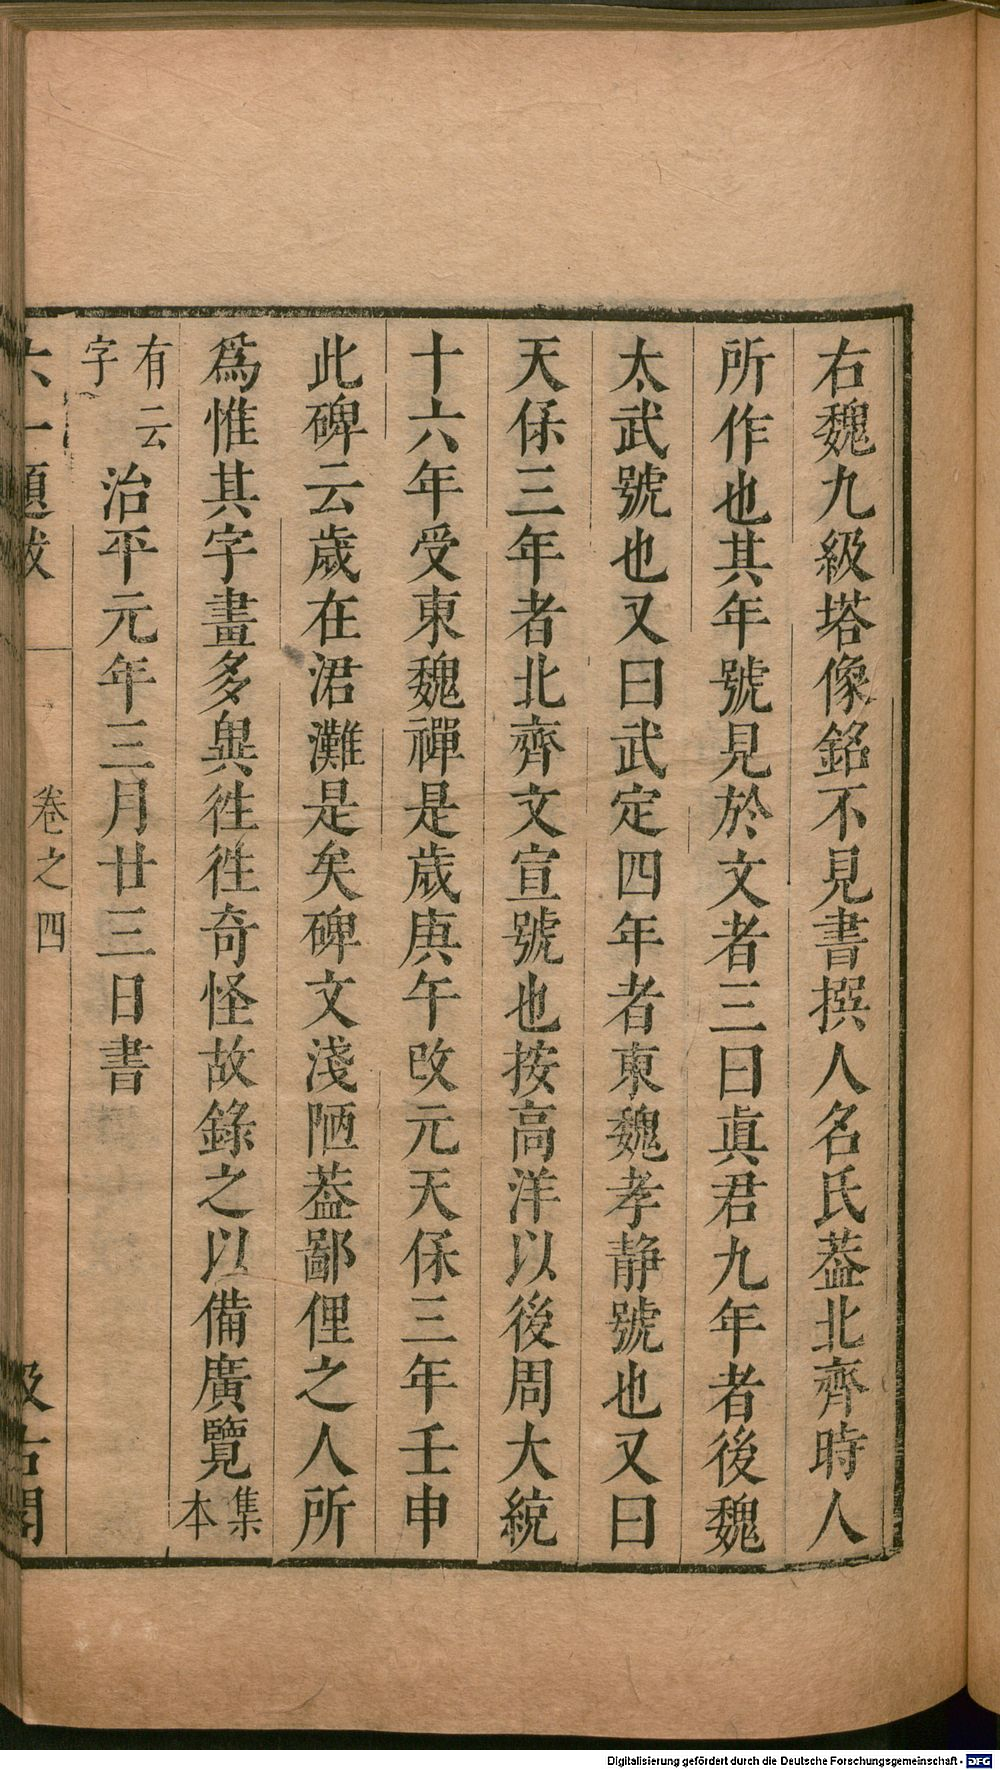 右魏九級塔像銘不見書撰人名氏葢北齊時人
所作也其年號見於文者三曰眞君九年者後魏
太武號也又曰武定四年者東魏孝静號也又曰
天保三年者北齊文宣號也按高洋以後周大統
十六年受東魏禪是歲庚午改元天保三年壬申
此碑云歲在涒灘是矣碑文淺陋葢鄙俚之人所
爲惟其字畫多異徃徃奇怪故錄之以備廣覽集本
有云字 治平元年三月廿三日書
六一題跋 卷之四 汲古閣
Digitalisierung gefördert durch die Deutsche Forschungsgemeinschaft - DFG